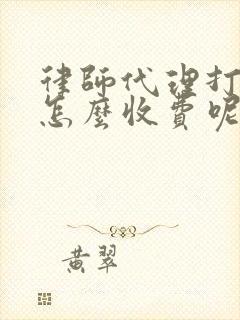 律師代理打
怎麼收費呢
黃翠